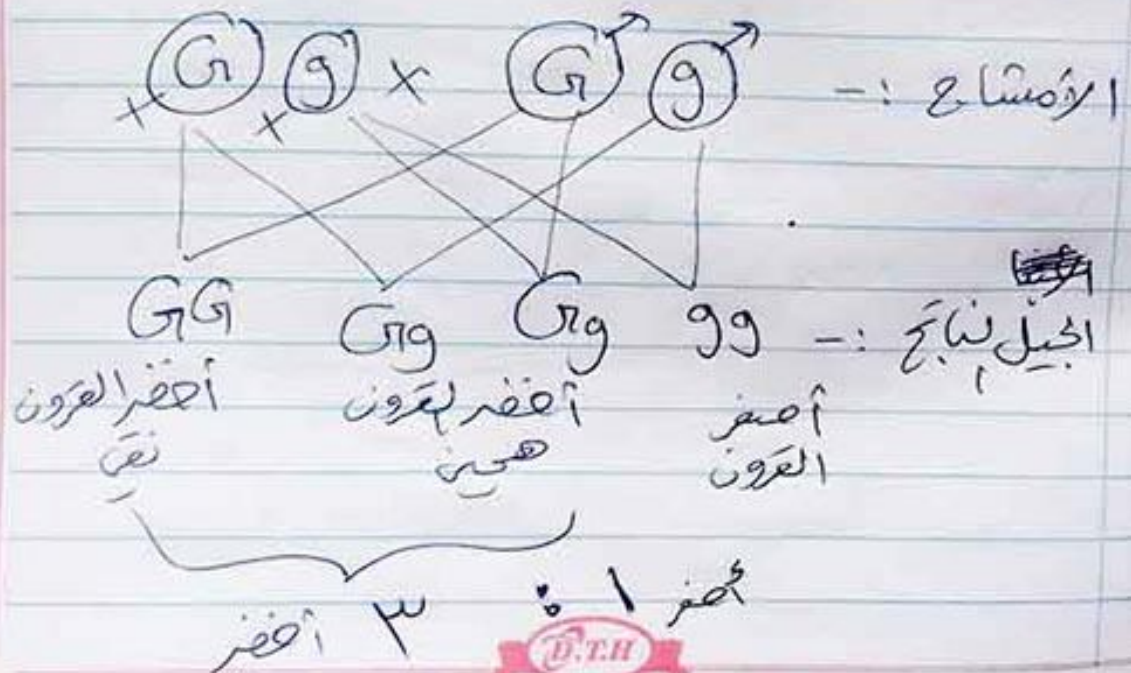 الأمشاج :- G g × G g
الجيل الناتج :- GG Gg Gg gg
أخضر القرون أخضر القرون أصفر
نقي هجين القرون
٣ أخضر : ١ أصفر
D.T.H